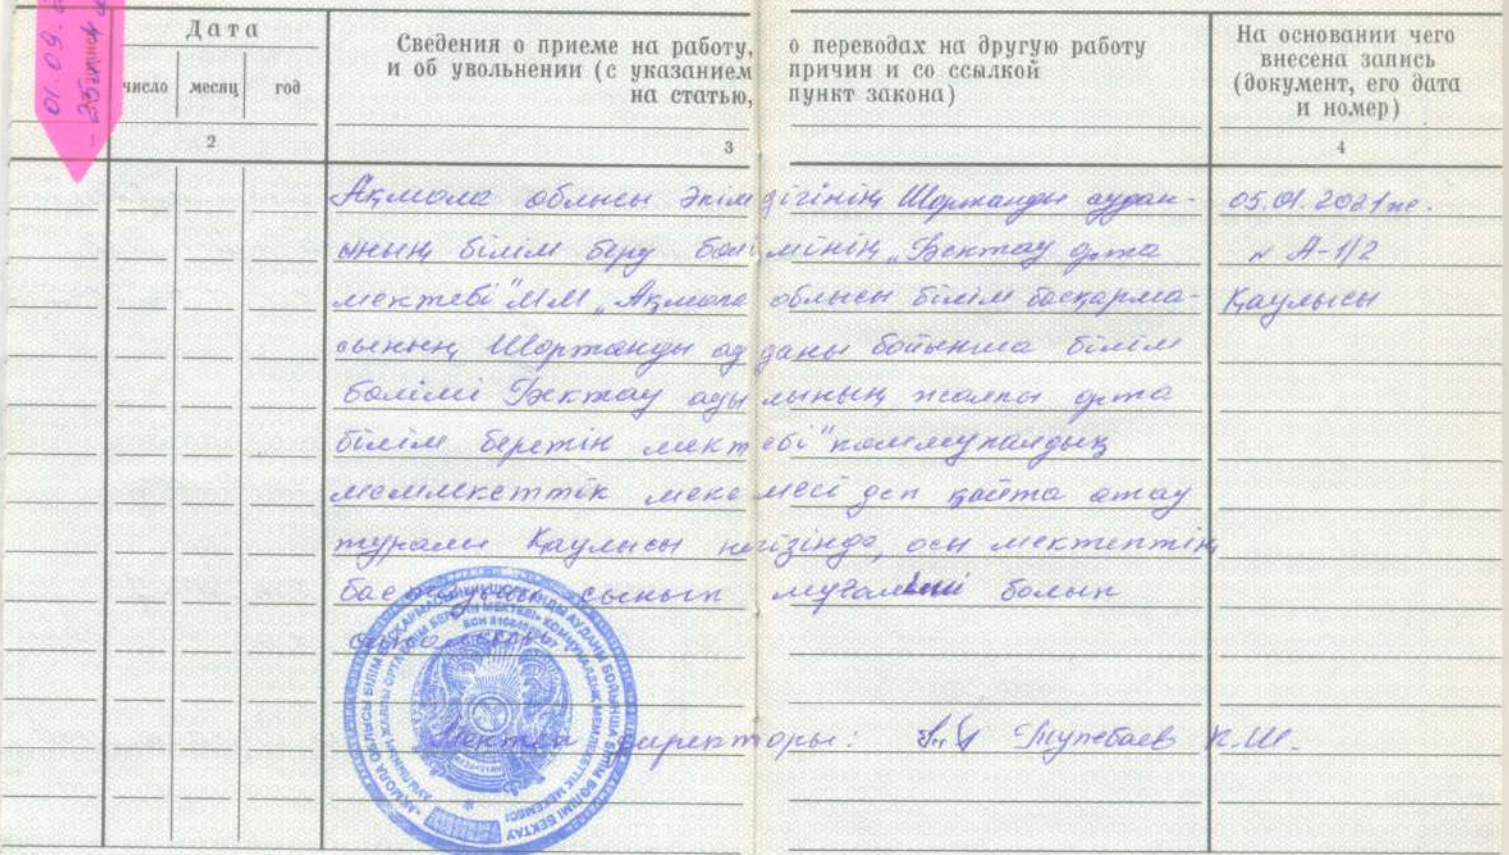 01.09.
Дата
Сведения о приеме на работу, о переводах на другую работу
и об увольнении (с указанием причин и со ссылкой
на статью, пункт закона)
На основании чего
внесена запись
(документ, его дата
и номер)
число месяц год
2 3 4
Ақмола облысы әкімдігінің Шортанды аудан- 05.01.2021 ж.
ының білім беру бөлімінің „Бектау орта № А-1/2
мектебі" ММ „Ақмола облысы білім басқарма- Қаулысы
сының Шортанды ауданы бойынша білім
бөлімі Бектау ауылының жалпы орта
білім беретін мектебі" коммуналдық
мемлекеттік мекемесі деп қайта атау
туралы Қаулысы негізінде, осы мектептің
бастауыш сынып мұғалімі болып
Мектеп директоры: Тупебаев К.Ш.
«АҚМОЛА ОБЛЫСЫ БІЛІМ БАСҚАРМАСЫНЫҢ ШОРТАНДЫ АУДАНЫ БОЙЫНША БІЛІМ БӨЛІМІ БЕКТАУ
АУЫЛЫНЫҢ ЖАЛПЫ ОРТА БІЛІМ БЕРЕТІН МЕКТЕБІ» КОММУНАЛДЫҚ МЕМЛЕКЕТТІК МЕКЕМЕСІ
БСН